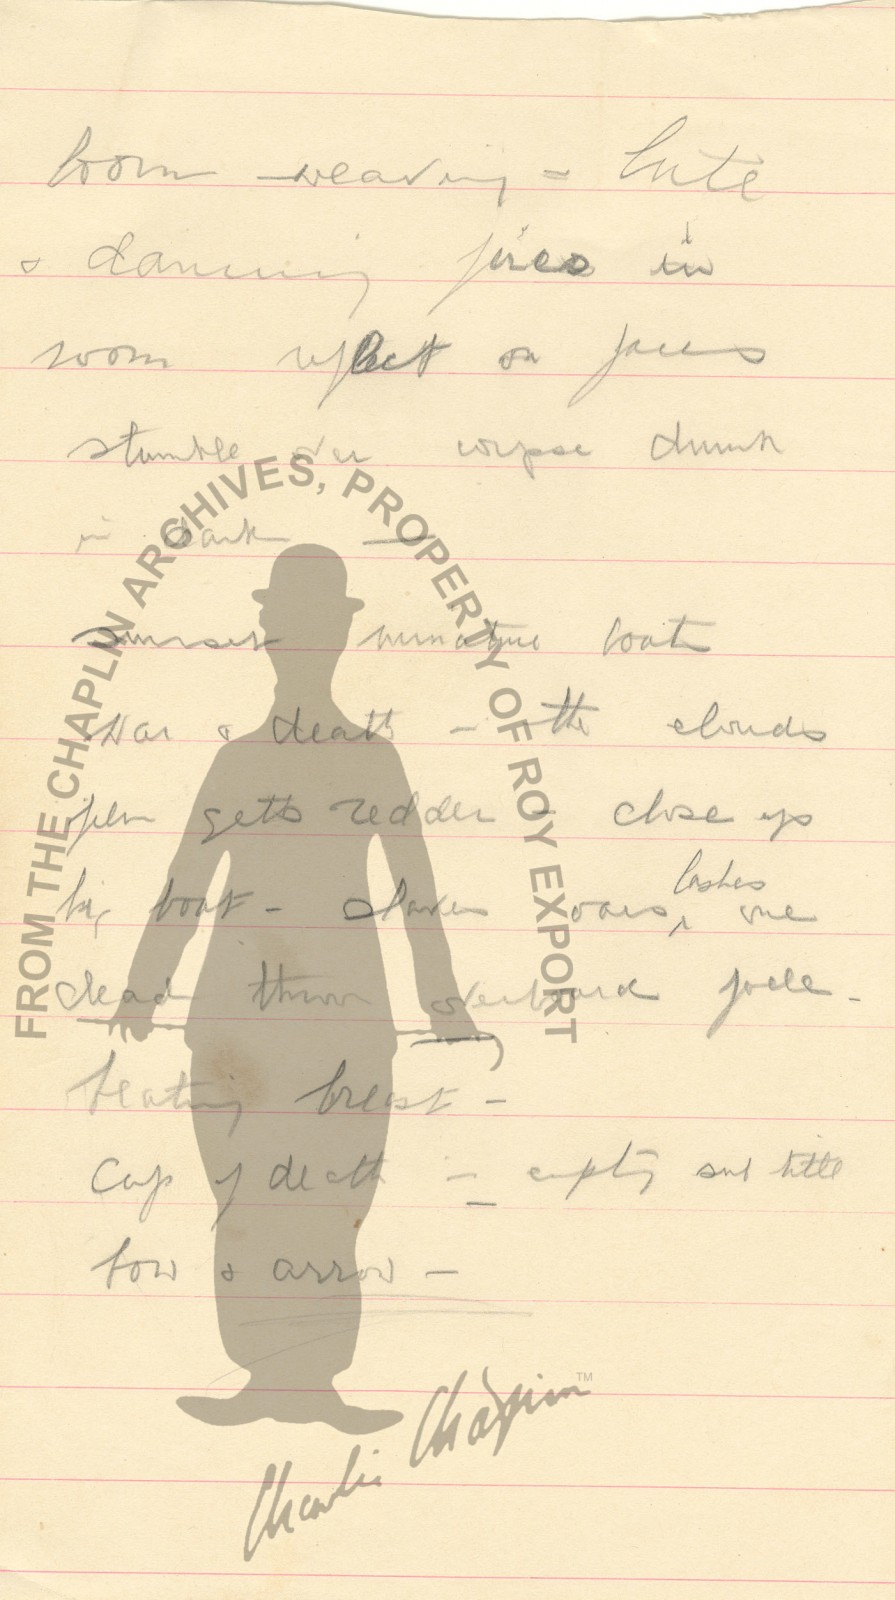 loom weaving - lute
& dancing fires in
room reflect on faces
stumble over corpse drunk
in dark —
sunset miniature boat
war & death - the clouds
open gets redder - close up
big boat - slaves oars, lashes one
dead thrown overboard
beating breast -
Cup of death - empty sub title
bow & arrow -
FROM THE CHAPLIN ARCHIVES, PROPERTY OF ROY EXPORT
Charlie Chaplin ™